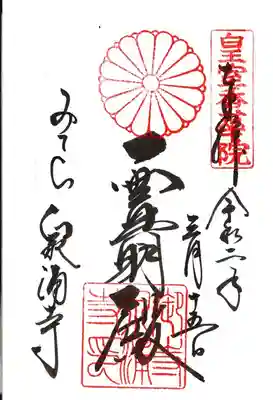 皇室香華院
奉拝
令和二年
三月十五日
霊明殿
みてら 泉涌寺